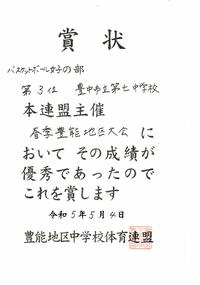 賞状
バスケットボール女子の部
第3位 豊中市立第七中学校
本連盟主催
春季豊能地区大会に
おいて その成績が
優秀であったので
これを賞します
令和5年5月4日
豊能地区中学校体育連盟